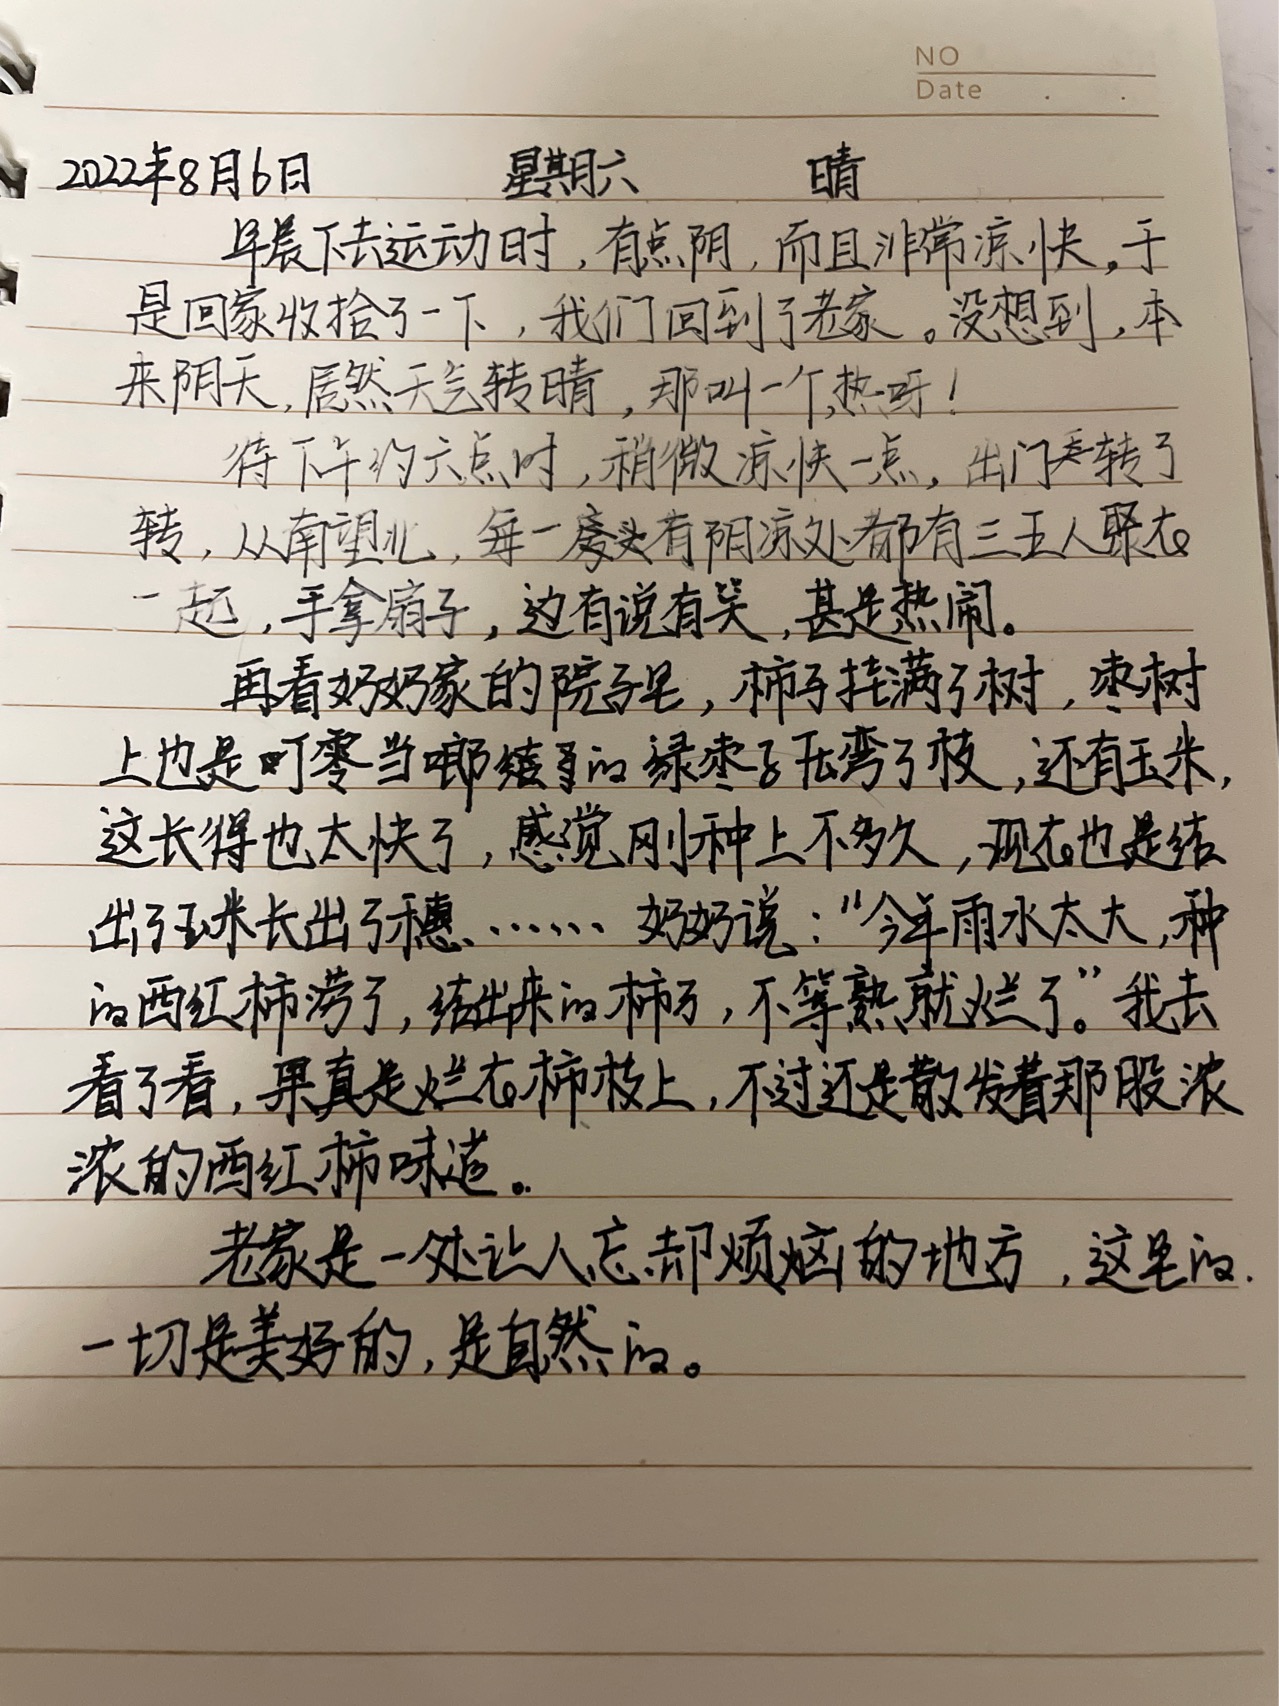 NO
Date . .
2022年8月6日 星期六 晴
早晨下去运动时，有点阴，而且非常凉快。于
是回家收拾了一下，我们回到了老家。没想到，本
来阴天，居然天气转晴，那叫一个热呀！
待下午约六点时，稍微凉快一点，出门转了
转，从南望北，每一房头有阴凉处都有三五人聚在
一起，手拿扇子，边有说有笑，甚是热闹。
再看奶奶家的院子里，柿子挂满了树，枣树
上也是叮零当啷的绿枣子压弯了枝，还有玉米，
这长得也太快了，感觉刚种上不多久，现在也是结
出了玉米长出了穗……奶奶说："今年雨水太大，种
的西红柿涝了，结出来的柿子，不等熟就烂了。"我去
看了看，果真是烂在柿枝上，不过还是散发着那股浓
浓的西红柿味道。
老家是一处让人忘却烦恼的地方，这里的
一切是美好的，是自然的。